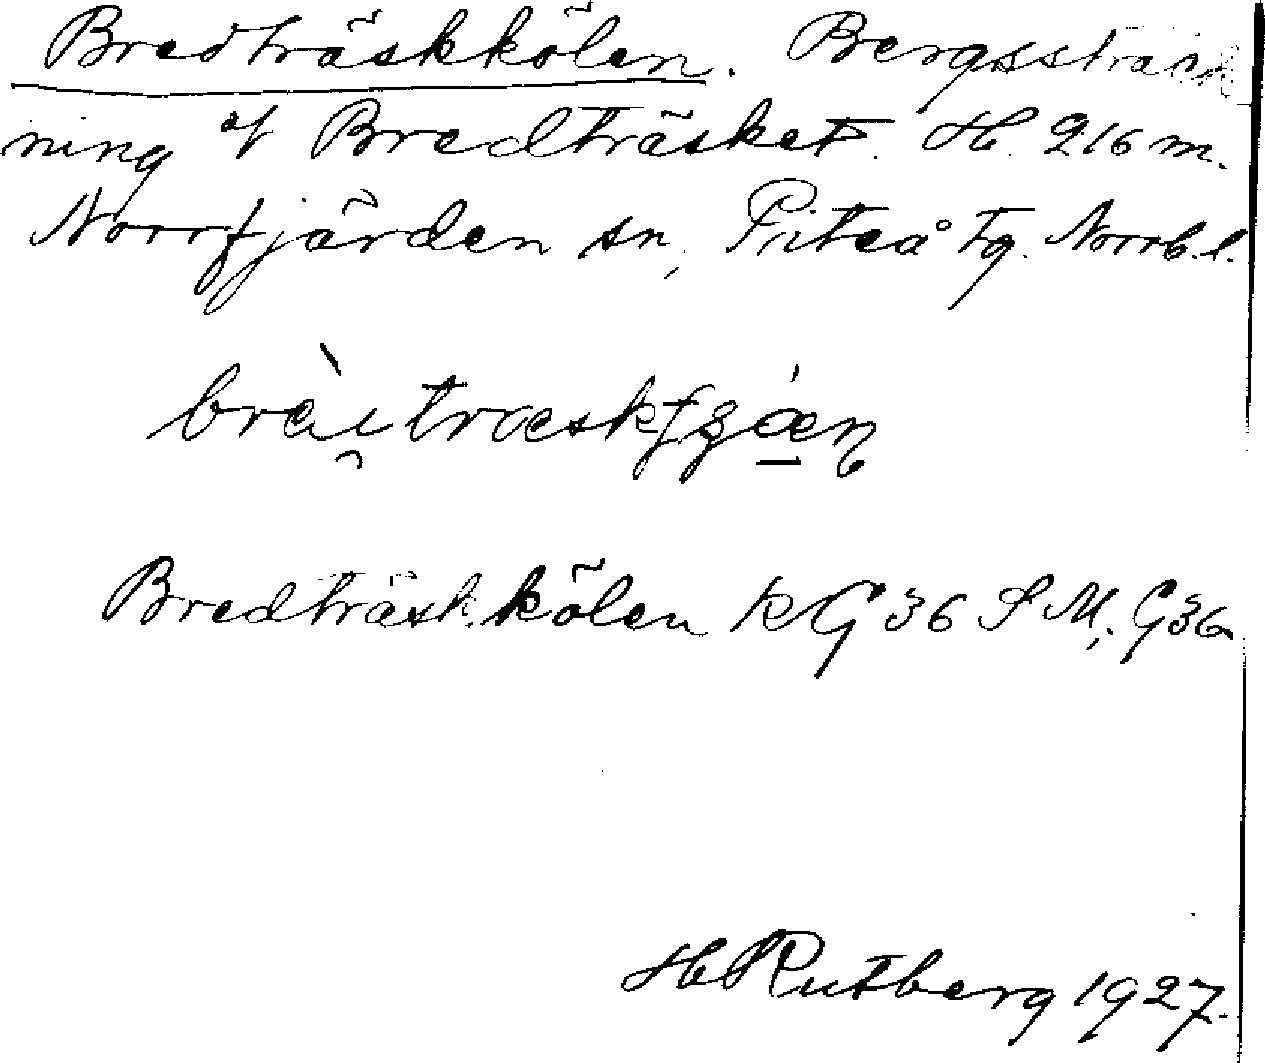 Bredträskkölen. Bergssträck
ning v Bredträsket. H. 216 m.
Norrfjärden sn, Piteå tg. Norrb.l.
Bredträskkölen k G 36 S M, G36
H Rutberg 1927.